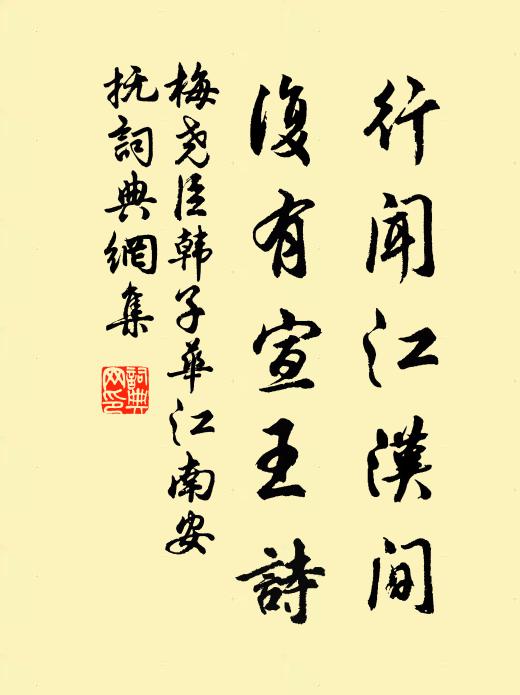 行闻江漢间
復有宣王詩
梅尧臣韩子華江南安
抚詞典網集
詞典网印